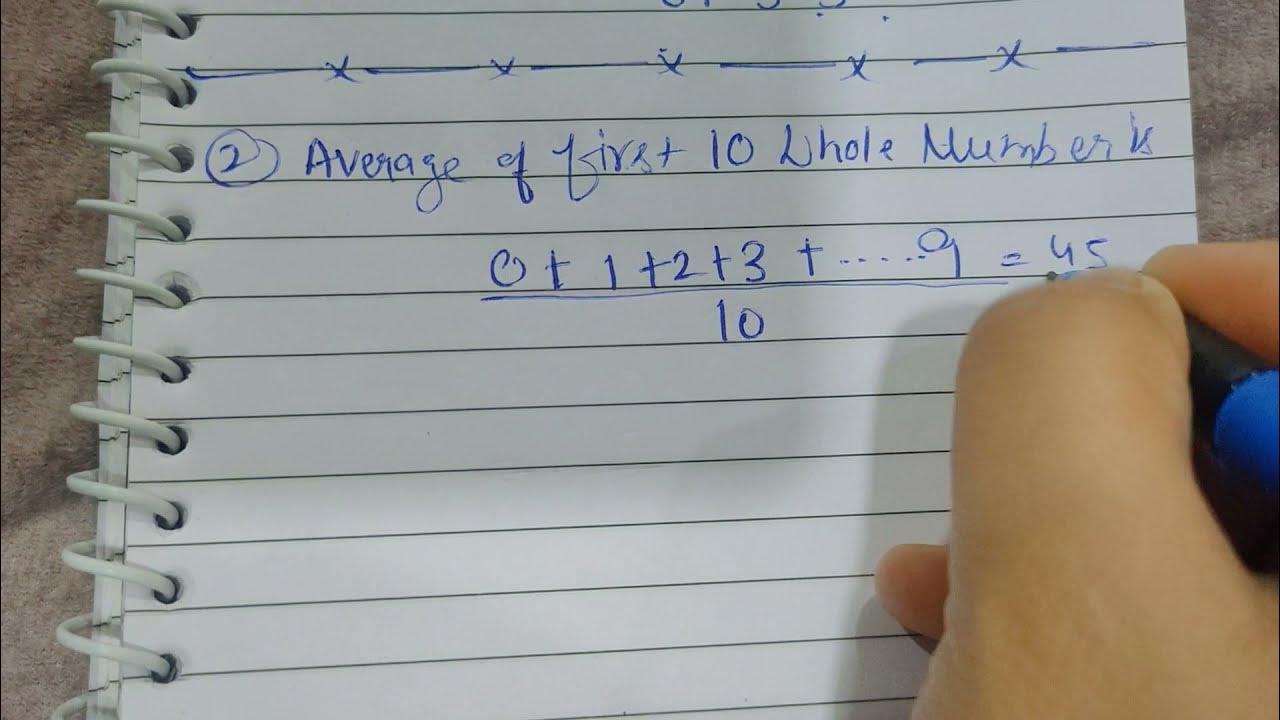 ② Average of first 10 Whole Number is
0 + 1 + 2 + 3 + ..... 9 = 45
10